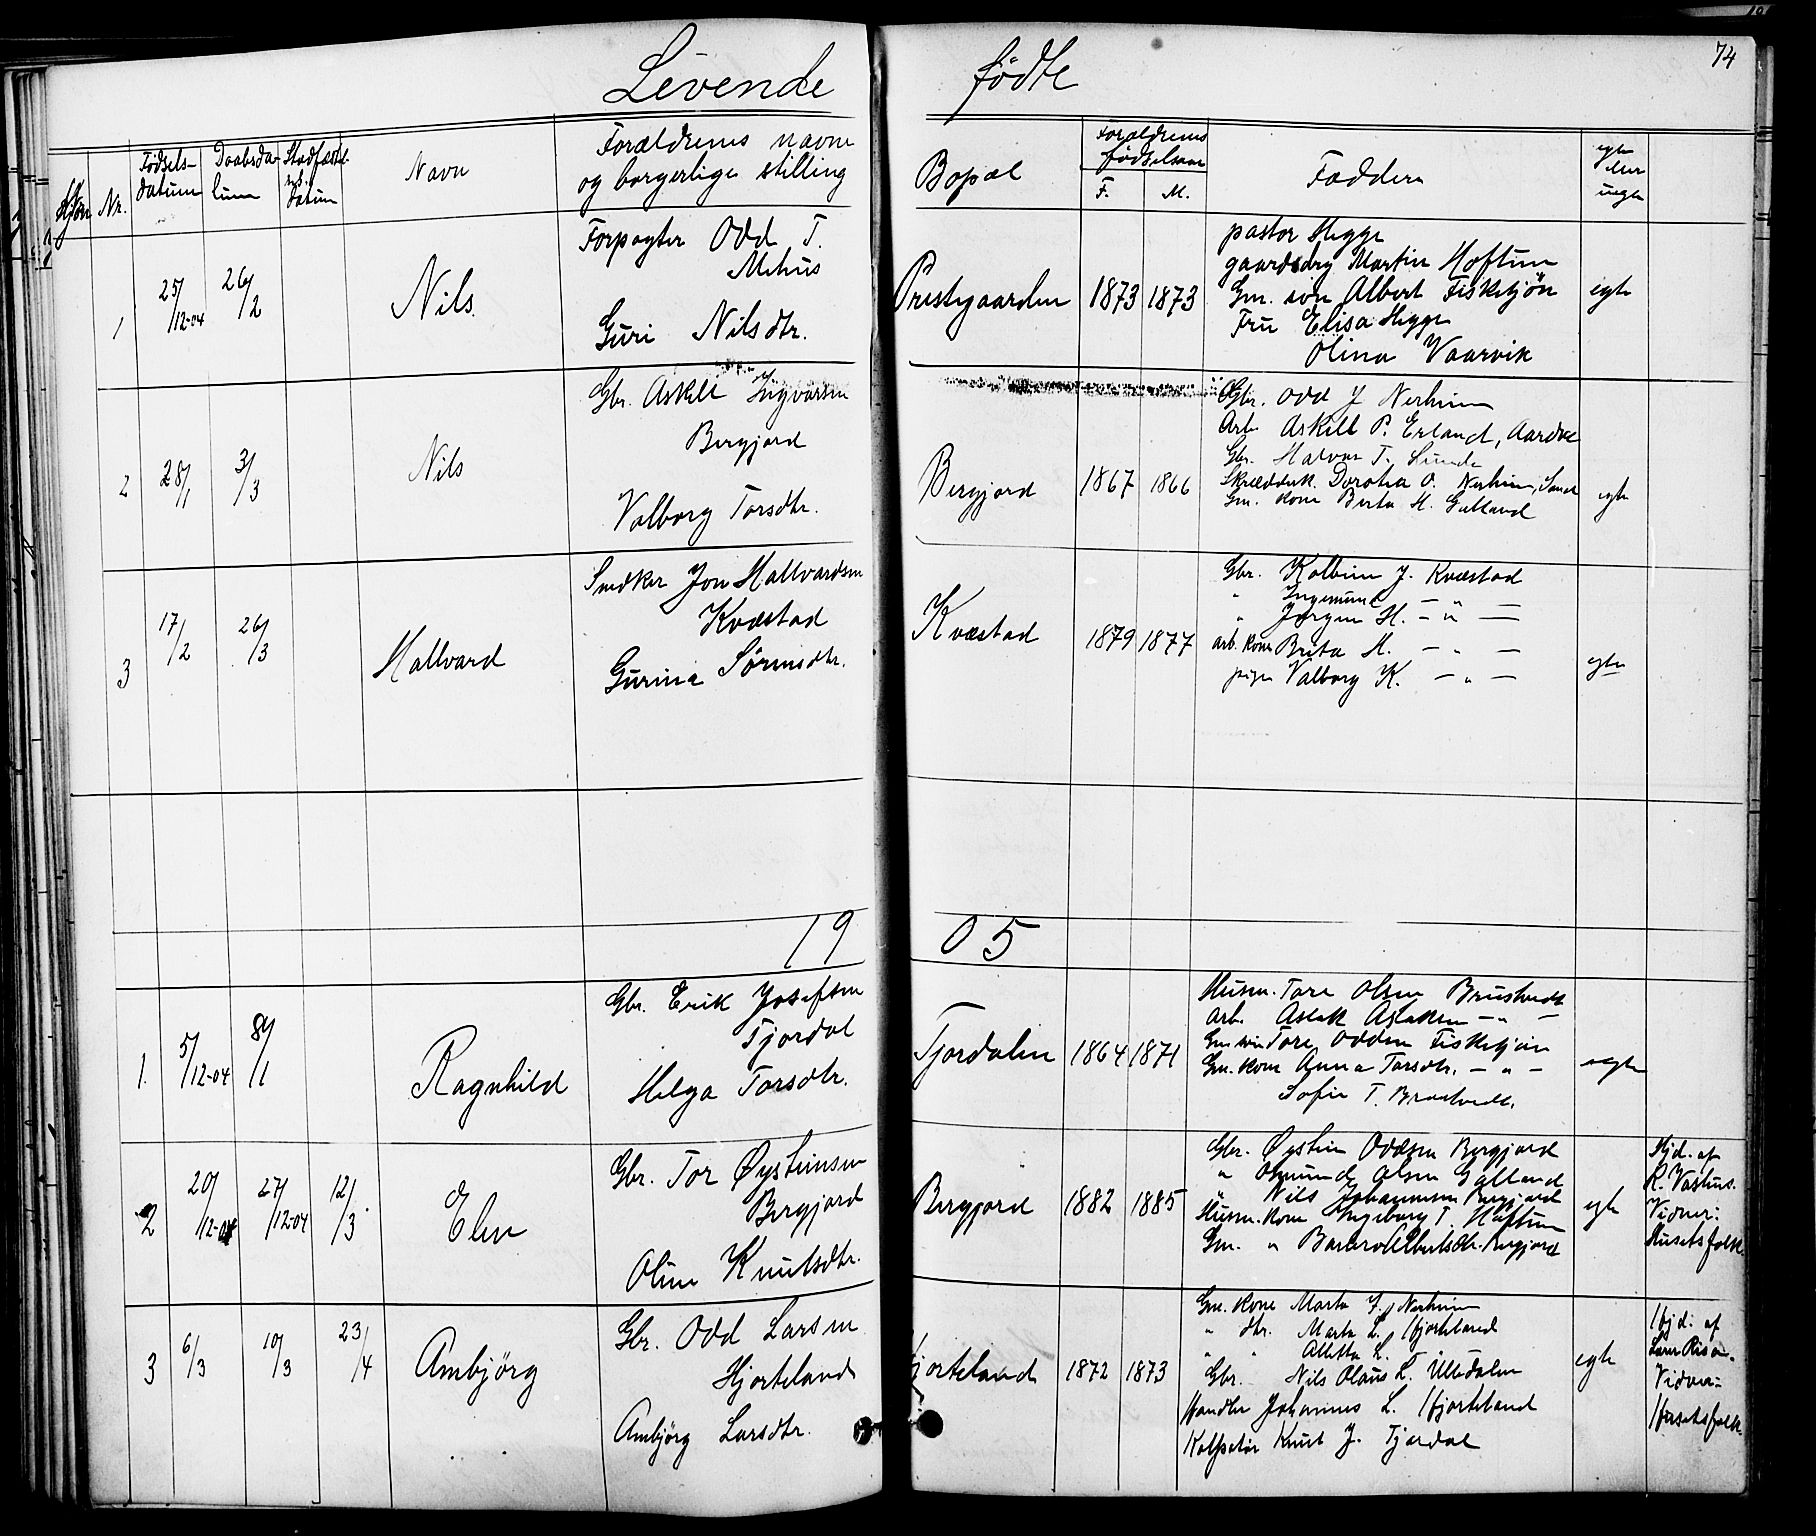 74
Levende fødte
Kjøn
Nr.
Fødsels-
datum
Daabsda-
tum
Stadfæstel-
ses.
datum
Navn
Forældrenes navne
og borgerlige stilling
Bopæl
Forældrenes
fødselsaar
F. M.
Faddere
egte
eller
uegte
1
25/12-04
26/2
Nils
Forpagter Odd T.
Mehus
Guri Nilsdtr.
Prestegaarden
1873 1873
pastor Hegge
gaardsdrg Martin Hoftun
Gm. søn Albert Fisketjøn
Fru Elisa Hegge
Olina Vaarvik
egte
2
28/1
3/3
Nils
Gbr. Askell Ingvarsen
Bergjord
Valborg Torsdtr.
Bergjord
1867 1866
Gbr. Odd J Nerheim
Arb. Askell P. Erland, Aardal
Gbr. Halvor T. Lunde
Skrædderk. Dorothea O. Nerheim, Sand
Gm. kone Berta H. Galland
egte
3
17/2
26/3
Hallvard
Snedker Jon Hallvardsen
Kvæstad
Gurina Sørensdtr.
Kvæstad
1879 1877
Gbr. Kolbein J. Kvæstad
" Ingemund — " —
" Jørgen H. — " —
arb. kone Berta H. — " —
pige Valborg K. — " —
egte
1905
1.
5/12-04
8/1
Ragnhild
Gbr. Erik Josefsen
Tjordal
Helga Torsdtr.
Tjordalen
1864 1871
Husm. Tore Olsen Brustvedt
Arb. Aslak Aslaksen — " —
Gm søn Tore Odden Fisketjøn
Gm. kone Anna Torsdtr. — " —
Sofie T. Brustvedt.
egte
2
20/12-04
27/12-04
12/3
Elen
Gbr. Tor Øysteinsen
Bergjord
Oline Knutsdtr.
Bergjord
1882 1885
Gbr. Øystein Oddsen Bergjord
" Osmund Olsen Galland
" Nils Johannesen Bergjord
Husm. kone Ingeborg T. Hoftun
Gm. " Barbro Albertsdtr. Bergjord
egte
Hjd. af
R. Vashus.
Vidner:
Husetsfolk.
3
6/3
10/3
23/4
Ambjørg
Gbr. Odd Larsen
Hjorteland
Ambjørg Larsdtr.
Hjorteland
1872 1873
Gm. kone Marta J. Nerheim
" dtr. Marta L. Hjorteland
" " Alletta L. "
Gbr. Nils Olaus L. Ulledalen
Handler Johannes L. Hjorteland
Kolportør Knut J. Tjordal
egte
Hjd. af
Vidner:
Husetsfolk.